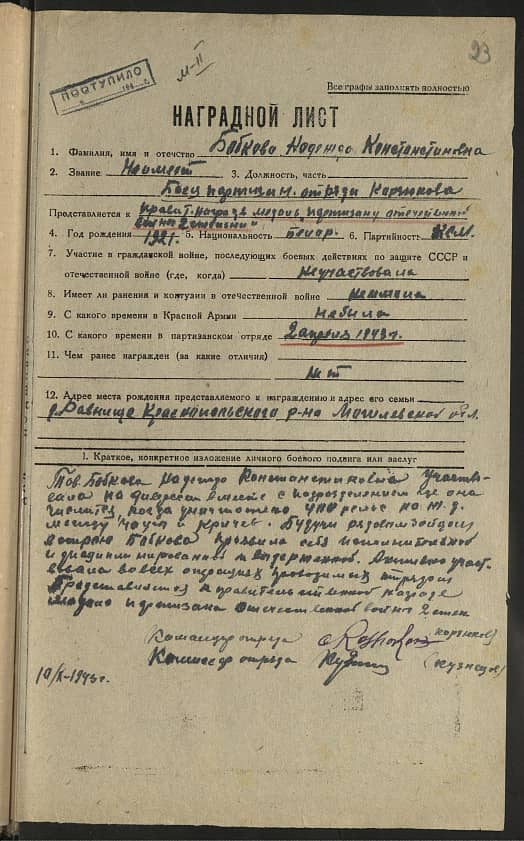 23
М-II
ПОСТУПИЛО
Все графы заполнять полностью
НАГРАДНОЙ ЛИСТ
1. Фамилия, имя и отчество Бабкова Надежда Константиновна
2. Звание Неимеет 3. Должность, часть
Боец партизан. отряда Коршкова
Представляется к правит. награде медаль партизану отечественной
войны 2 степени"
4. Год рождения 1921. 5. Национальность 6. Партийность
7. Участие в гражданской войне, последующих боевых действиях по защите СССР и
отечественной войне (где, когда) неучаствовала
8. Имеет ли ранения и контузии в отечественной войне неимела
9. С какого времени в Красной Армии небыла
10. С какого времени в партизанском отряде 2 апреля 1943 г.
11. Чем ранее награжден (за какие отличия)
нет
12. Адрес места рождения представляемого к награждению и адрес его семьи
д. Равнища Краснопольского р-на Могилевской обл.
I. Краткое, конкретное изложение личного боевого подвига или заслуг
Тов. Бабкова Надежда Константиновна Участво-
вала на вместе с подразделением где она
числится, когда уничтожено рельс на ж.д.
между и Кричев. Будучи рядовым бойцом
Бабкова проявила себя исполнительной
и дисциплинированной и выдержанной. Активно участ-
вовала во всех операциях проводимых отрядом
Представляется к правительственной награде
медаль партизана отечественной войны 2 степ
Командир отряда
Комиссар отряда (Кузнецов)
10/X-1943 г.